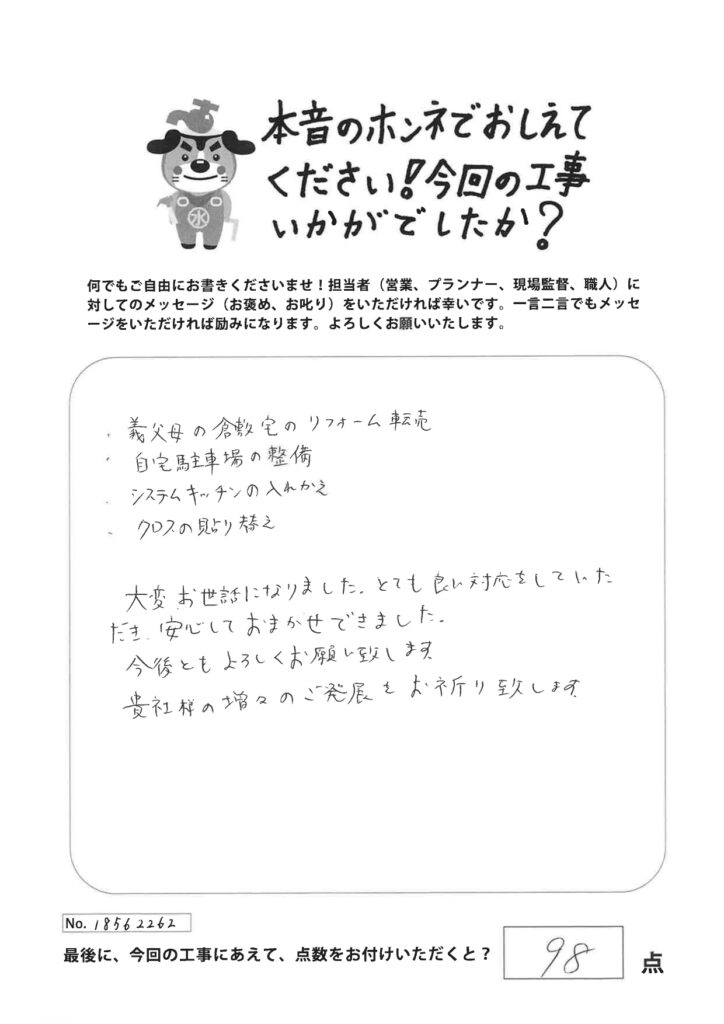 本音のホンネでおしえて
ください!今回の工事
いかがでしたか?
水
何でもご自由にお書きくださいませ!担当者(営業、プランナー、現場監督、職人)に
対してのメッセージ(お褒め、お叱り)をいただければ幸いです。一言二言でもメッセ
ージをいただければ励みになります。よろしくお願いいたします。
・義父母の倉敷宅のリフォーム転売
・自宅駐車場の整備
・システムキッチンの入れかえ
・クロスの貼り替え
大変お世話になりました。とても良い対応をしていた
だき、安心しておまかせできました。
今後ともよろしくお願い致します
貴社様の増々のご発展をお祈り致します
No. 18562262
最後に、今回の工事にあえて、点数をお付けいただくと?
98
点